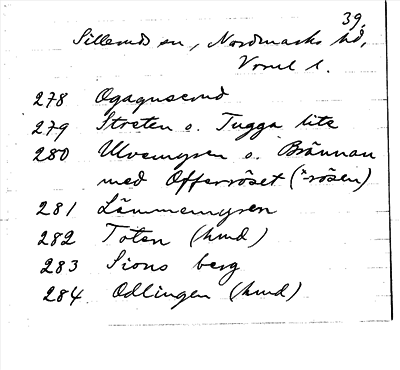 39.
Silleruds sn, Nordmarks hd,
Värml l.
278 Ogagnserud
279 Streten o. Tugga lite
280 Ulvemyren o. Brännan
med Offerröset ("rösen)
281 Lämmemyren
282 Toten (hmd)
283 Sions berg
284. Odlingen (hmd)